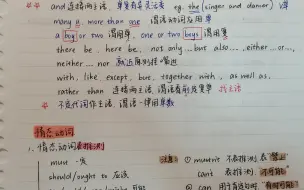 and 连接两主语, eg. the (singer and dancer) v单
many a, more than one 谓语动词用单
a boy or two 谓用单, one or two boys 谓用复
there be, here be, not only...but also..., either...or...,
neither... nor 就近原则
with, like, except, but, together with, as well as,
rather than 连接两主语, 谓语
不定代词作主语, 谓语一律用单数
情态动词
1. 情态动词表推测
must 一定
should/ought to 应该
注意: ① mustn't 不表推测, 表"禁止"
can't 表推测"不可能"
② can 用于肯定句时